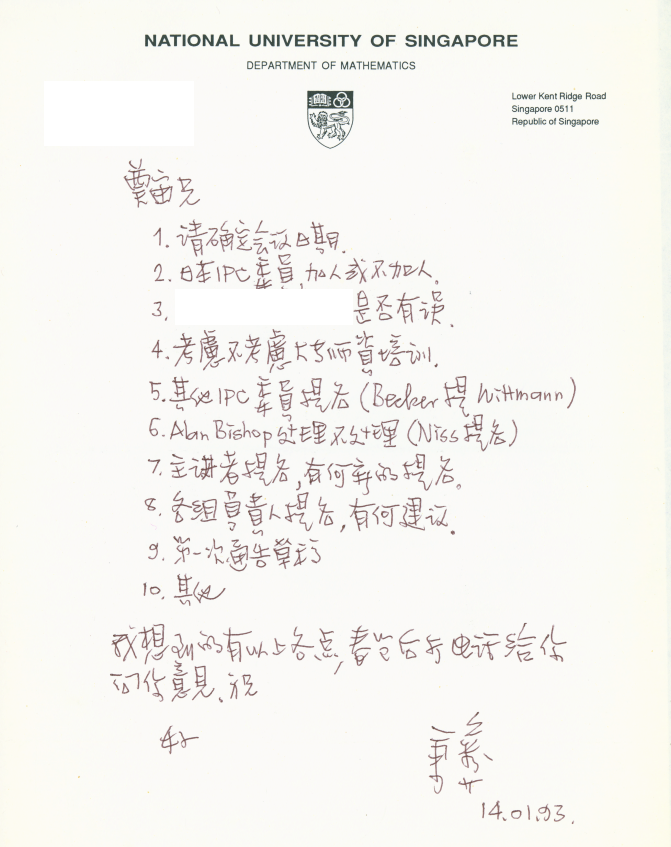 NATIONAL UNIVERSITY OF SINGAPORE
DEPARTMENT OF MATHEMATICS
Lower Kent Ridge Road
Singapore 0511
Republic of Singapore
奠宙兄
1. 请确定会议日期.
2. 日本IPC委員,加人或不加人.
3. 是否有误.
4. 考慮不考慮大专师資培训.
5. 其他IPC委員提名(Becker提Wittmann)
6. Alan Bishop处理不处理(Niss提名)
7. 主讲者提名,有何新的提名.
8. 各组負責人提名,有何建议.
9. 第一次通告草稿
10. 其他
我想到的有以上各点,春节后与电话给你
问你意見.祝
好
14.01.93.